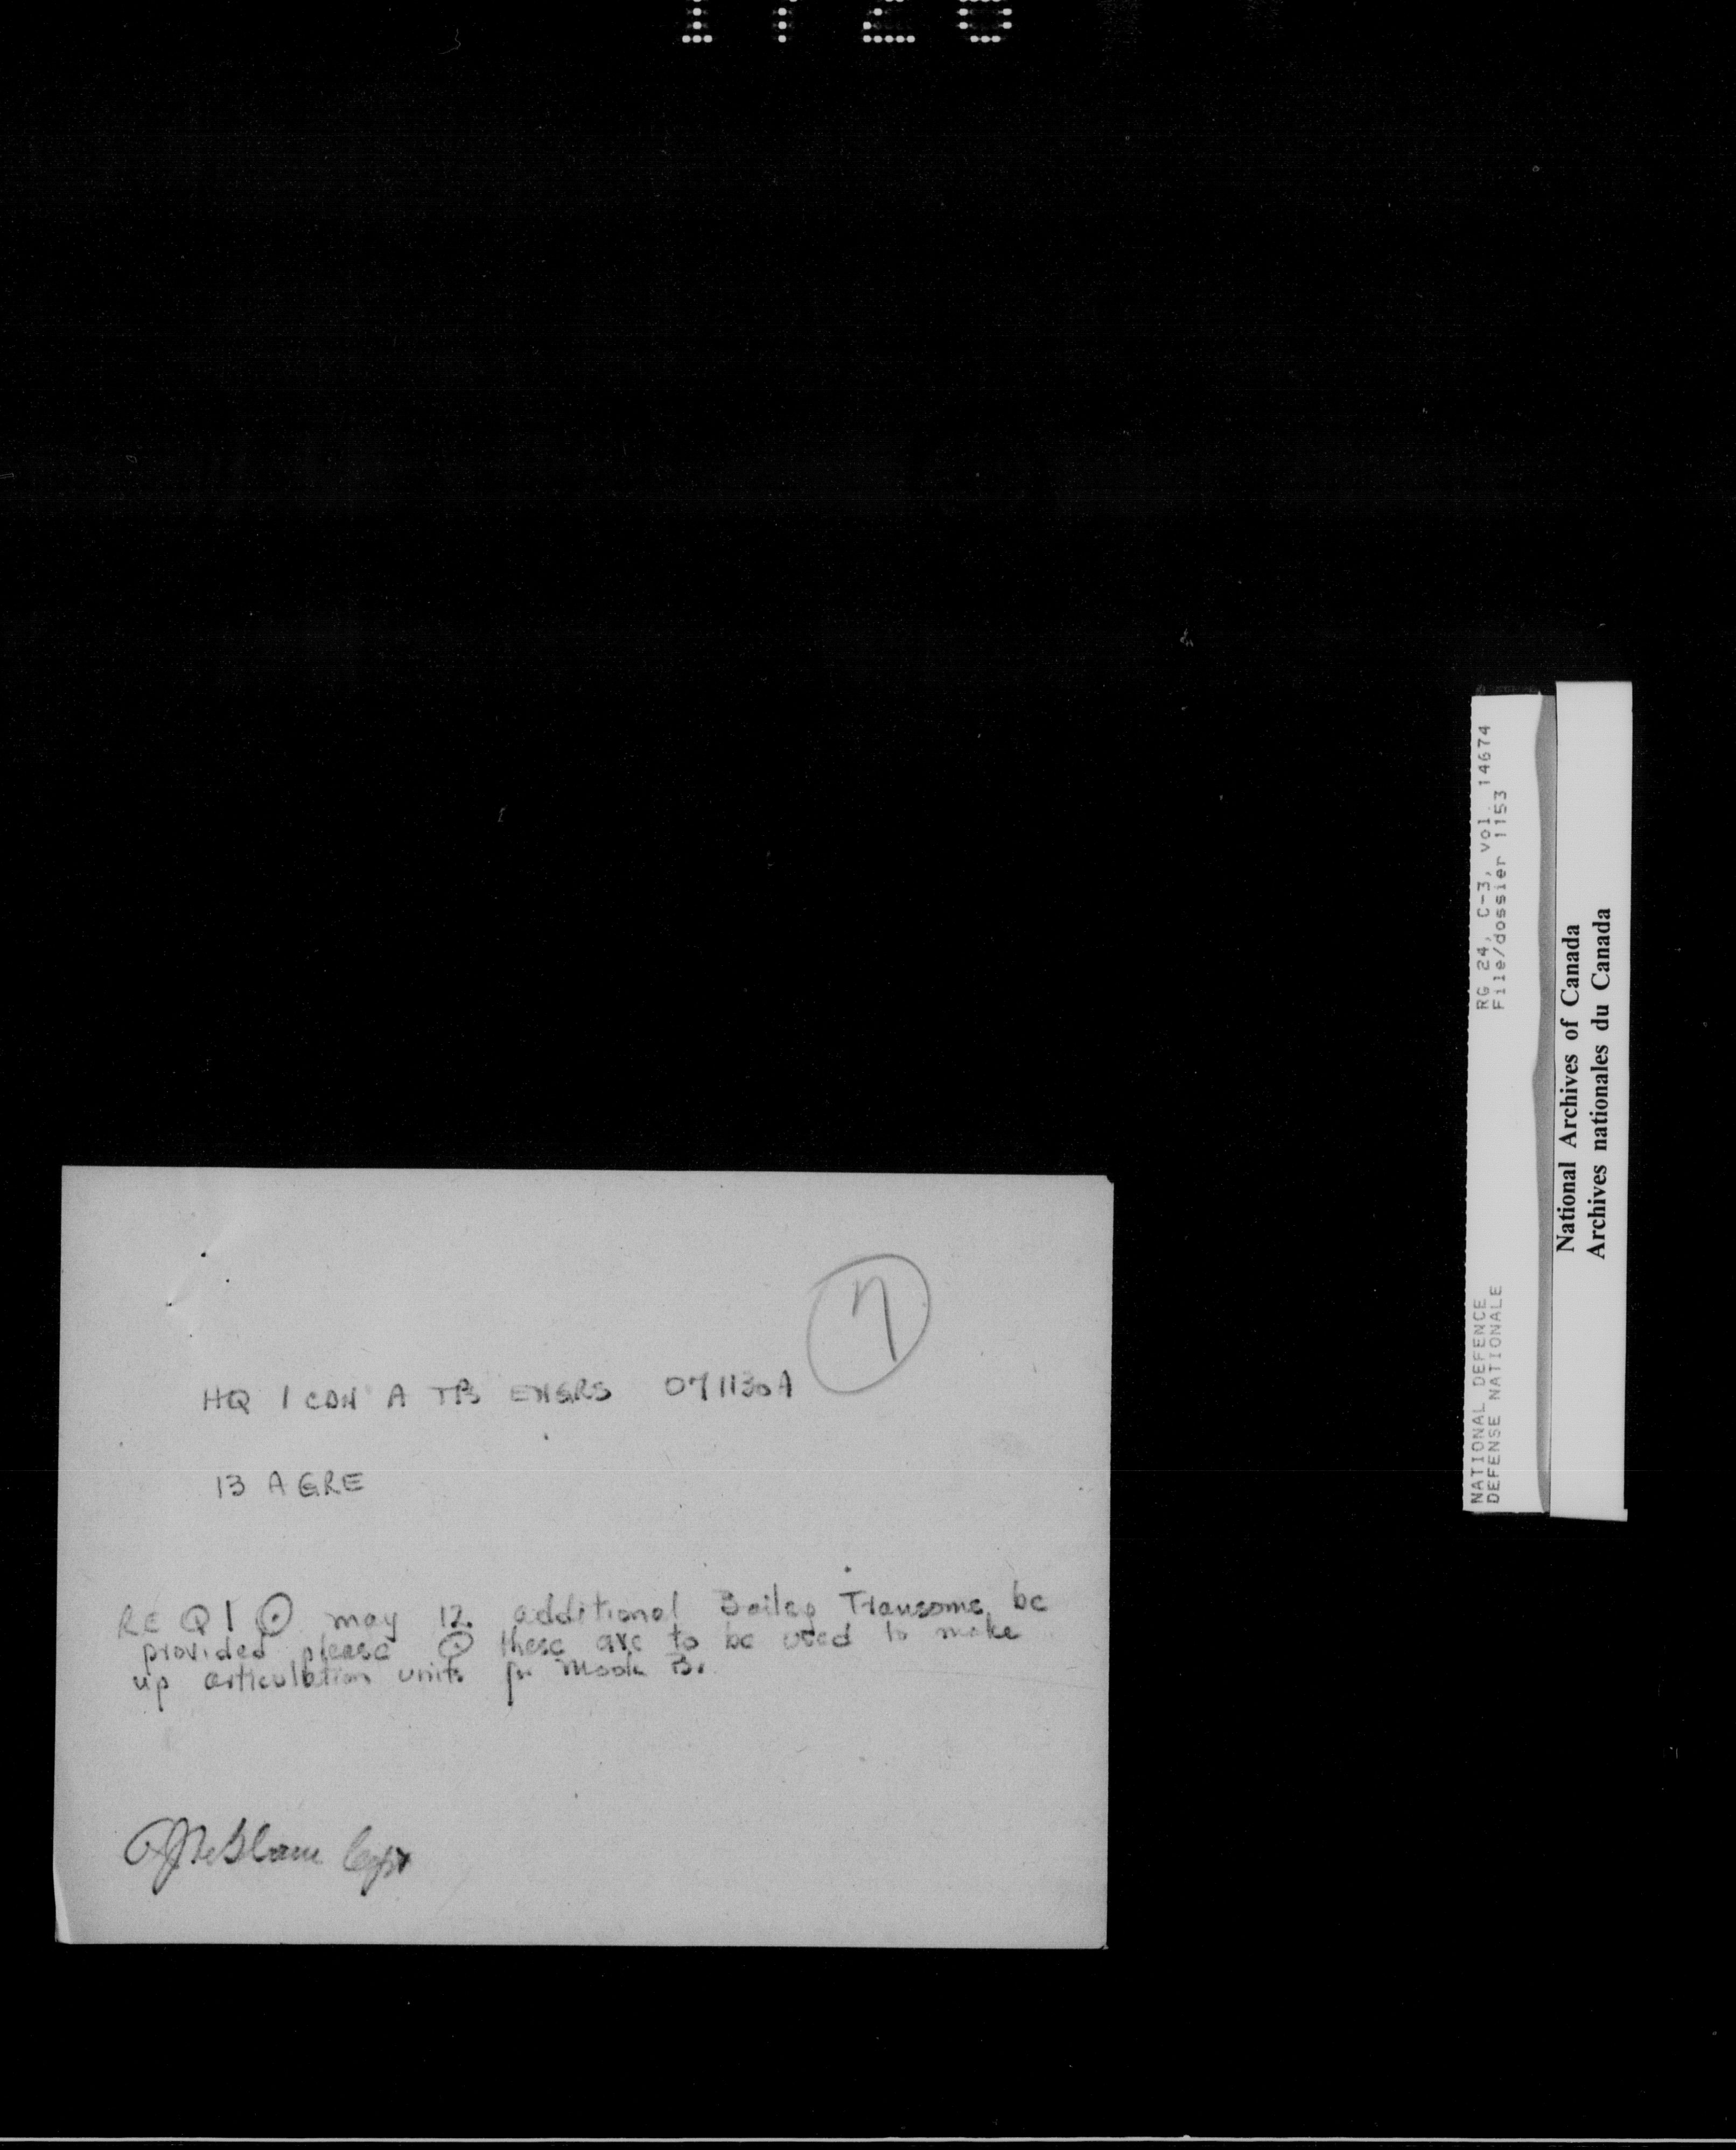 7
HQ 1 CDN A TPS ENGRS 071130A
13 AGRE
RE Q1 ⊙ may 12 additional Bailey Transoms be
provided please ⊙ these are to be used to make
up articulation units for Mook B.
Capt
NATIONAL DEFENCE RG 24, C-3, vol. 14674
DEFENSE NATIONALE File/dossier 1153
National Archives of Canada
Archives nationales du Canada